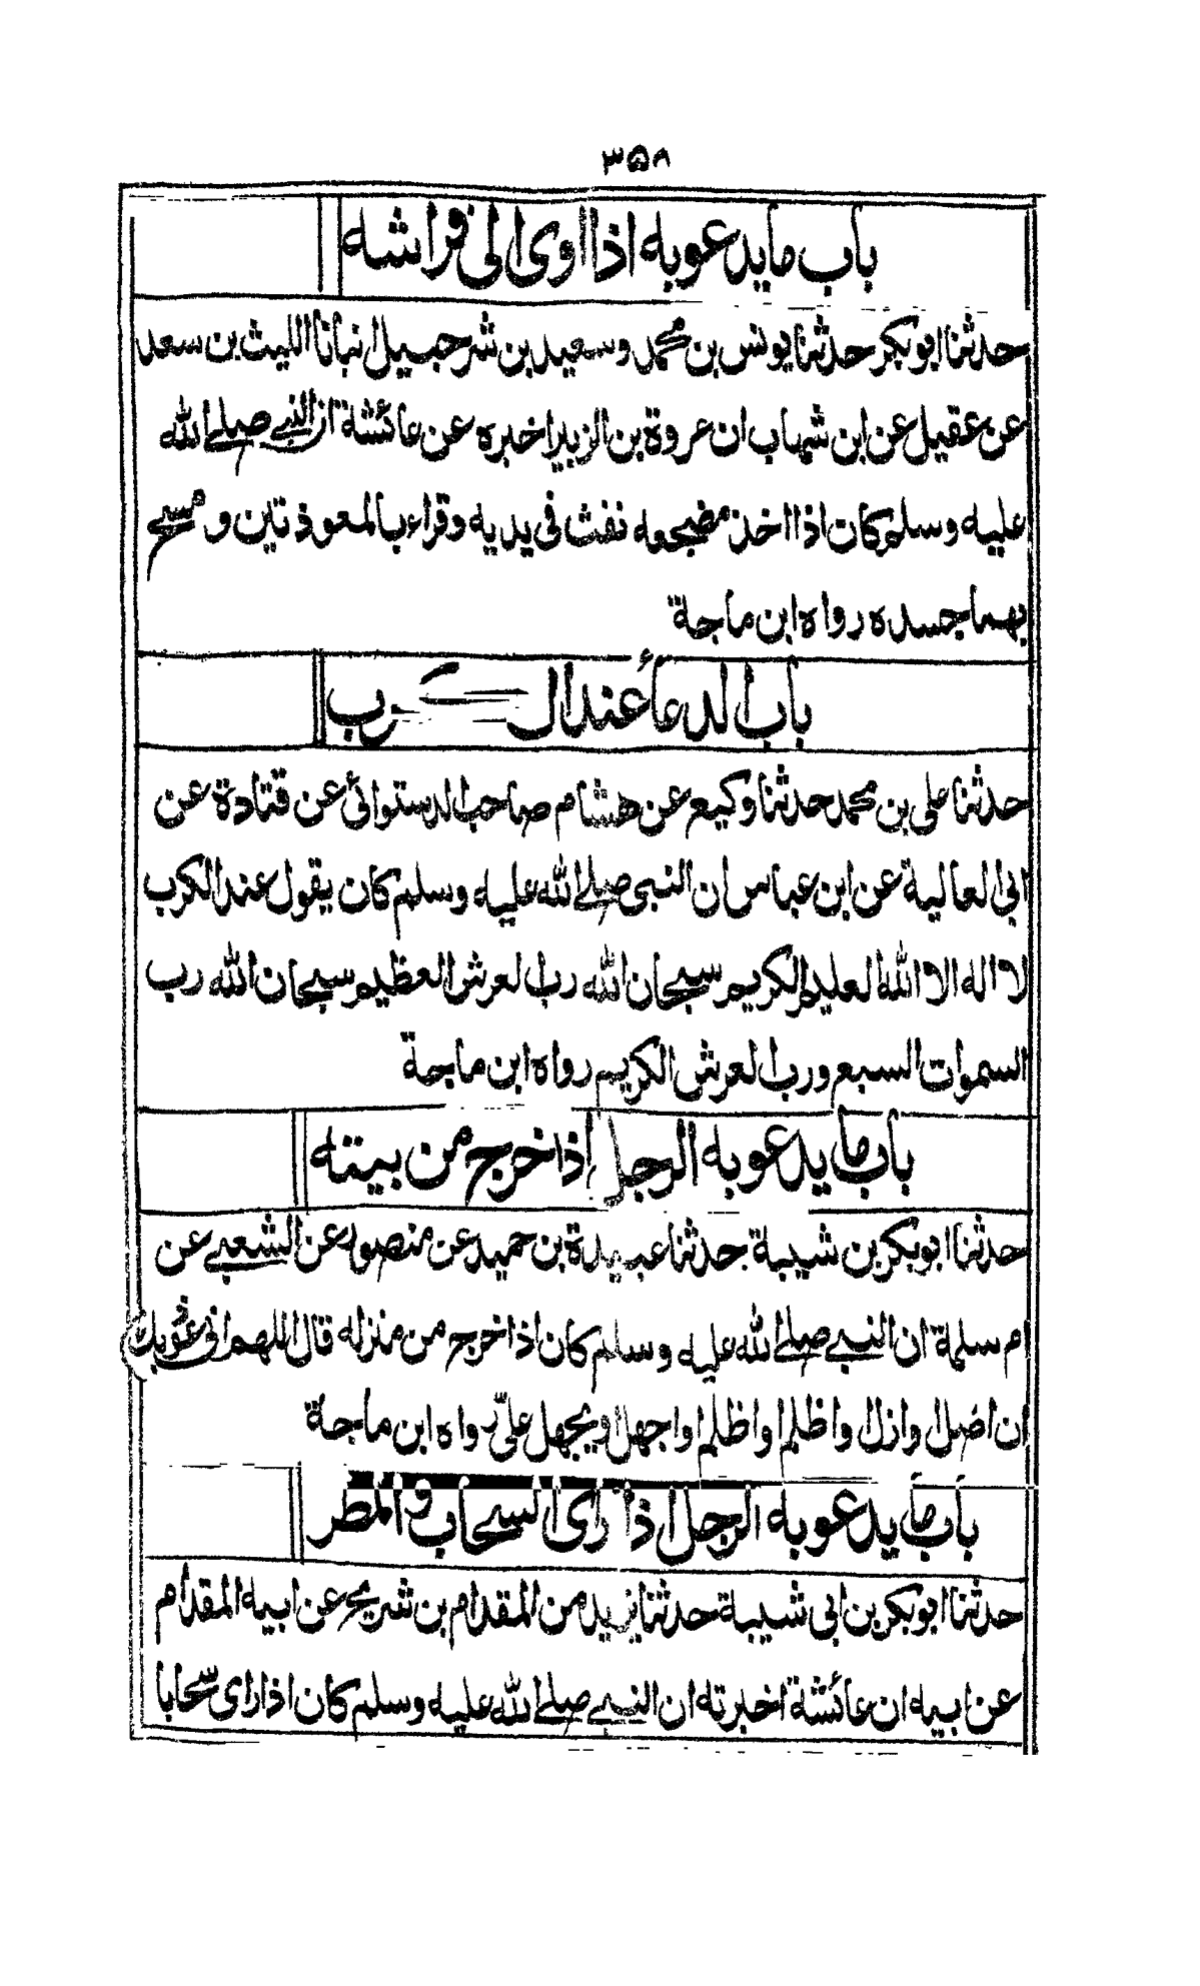 ۳۵۸
باب ما يدعو به اذا اوى الى فراشه
حدثنا ابو بكر حدثنا يونس بن محمد وسعيد بن شرحبيل انبانا الليث بن سعد
عن عقيل عن ابن شهاب ان عروة بن الزبير اخبره عن عائشة ان النبي صلے الله
عليه وسلم كان اذا اخذ مضجعه نفث فى يديه وقراء بالمعوذتين و مسح
بهما جسده رواه ابن ماجة
باب الدعأ عند الكرب
حدثنا على بن محمد حدثنا وكيع عن هشام صاحب الدستوائى عن قتادة عن
ابى العالية عن ابن عباس ان النبى صلے الله عليه وسلم كان يقول عند الكرب
لا اله الا الله العليم الكريم سبحان الله رب العرش العظيم سبحان الله رب
السموات السبع ورب العرش الكريم رواه ابن ماجة
باب ما يدعو به الرجل اذا خرج من بيته
حدثنا ابو بكر بن شيبة حدثنا عبيدة بن حميد عن منصور عن الشعبے عن
ام سلمة ان النبے صلے الله عليه وسلم كان اذا خرج من منزله قال اللهم انى اعوذ بك
ان اضل او ازل او اظلم او اظلم او اجهل او يجهل علىّ رواه ابن ماجة
باب ما يدعو به الرجل اذا راى السحاب والمطر
حدثنا ابو بكر بن ابى شيبة حدثنا يزيد من المقدام بن شريح عن ابيه المقدام
عن ابيه ان عائشة اخبرته ان النبے صلے الله عليه وسلم كان اذا راى سحابا